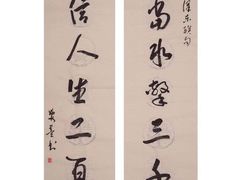 當水擊三千
信人生二百